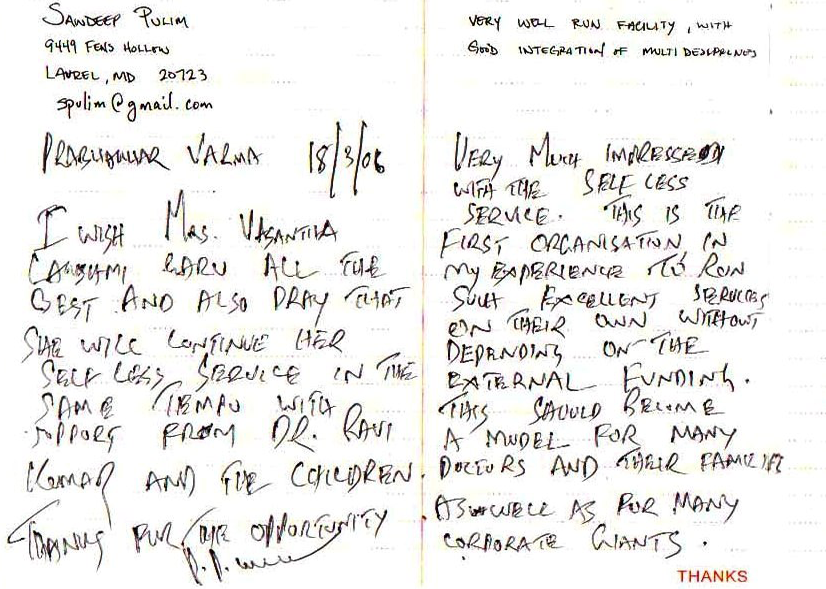 SANDEEP PULIM
9449 FENS HOLLOW
LAUREL, MD 20723
spulim@gmail.com
PRABHAKAR VARMA 18/3/06
I WISH MRS. VASANTHA
LAKSHMI GARU ALL THE
BEST AND ALSO PRAY THAT
SHE WILL CONTINUE HER
SELF LESS SERVICE IN THE
SAME TEMPO WITH
SUPPORT FROM DR. RAVI
KUMAR AND THE CHILDREN.
THANKS FOR THE OPPORTUNITY
VERY WELL RUN FACILITY, WITH
GOOD INTEGRATION OF MULTI
VERY MUCH IMPRESSED
WITH THE SELF LESS
SERVICE. THIS IS THE
FIRST ORGANISATION IN
MY EXPERIENCE TO RUN
SUCH EXCELLENT SERVICES
ON THEIR OWN WITHOUT
DEPENDING ON THE
EXTERNAL FUNDING.
THIS SHOULD BECOME
A MODEL FOR MANY
DOCTORS AND THEIR FAMILIES
AS WELL AS FOR MANY
CORPORATE GIANTS.
THANKS